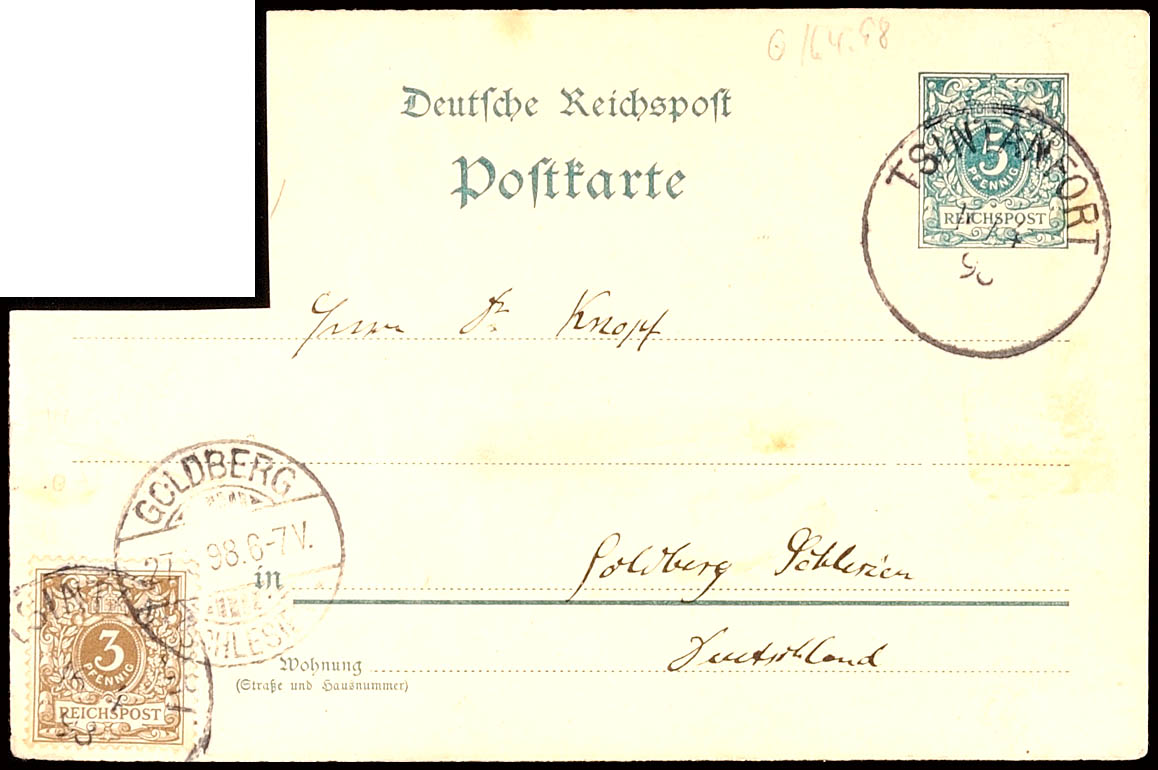 G 16.4.98
Deutsche Reichspost
Postkarte
5
PFENNIG
REICHSPOST
TSINTANFORT
98
Herrn Dr. Knopf
GOLDBERG
27 98.6-7V.
in
Goldberg Schlesien
Deutschland
Wohnung
(Straße und Hausnummer)
3
PFENNIG
REICHSPOST
16 4
98